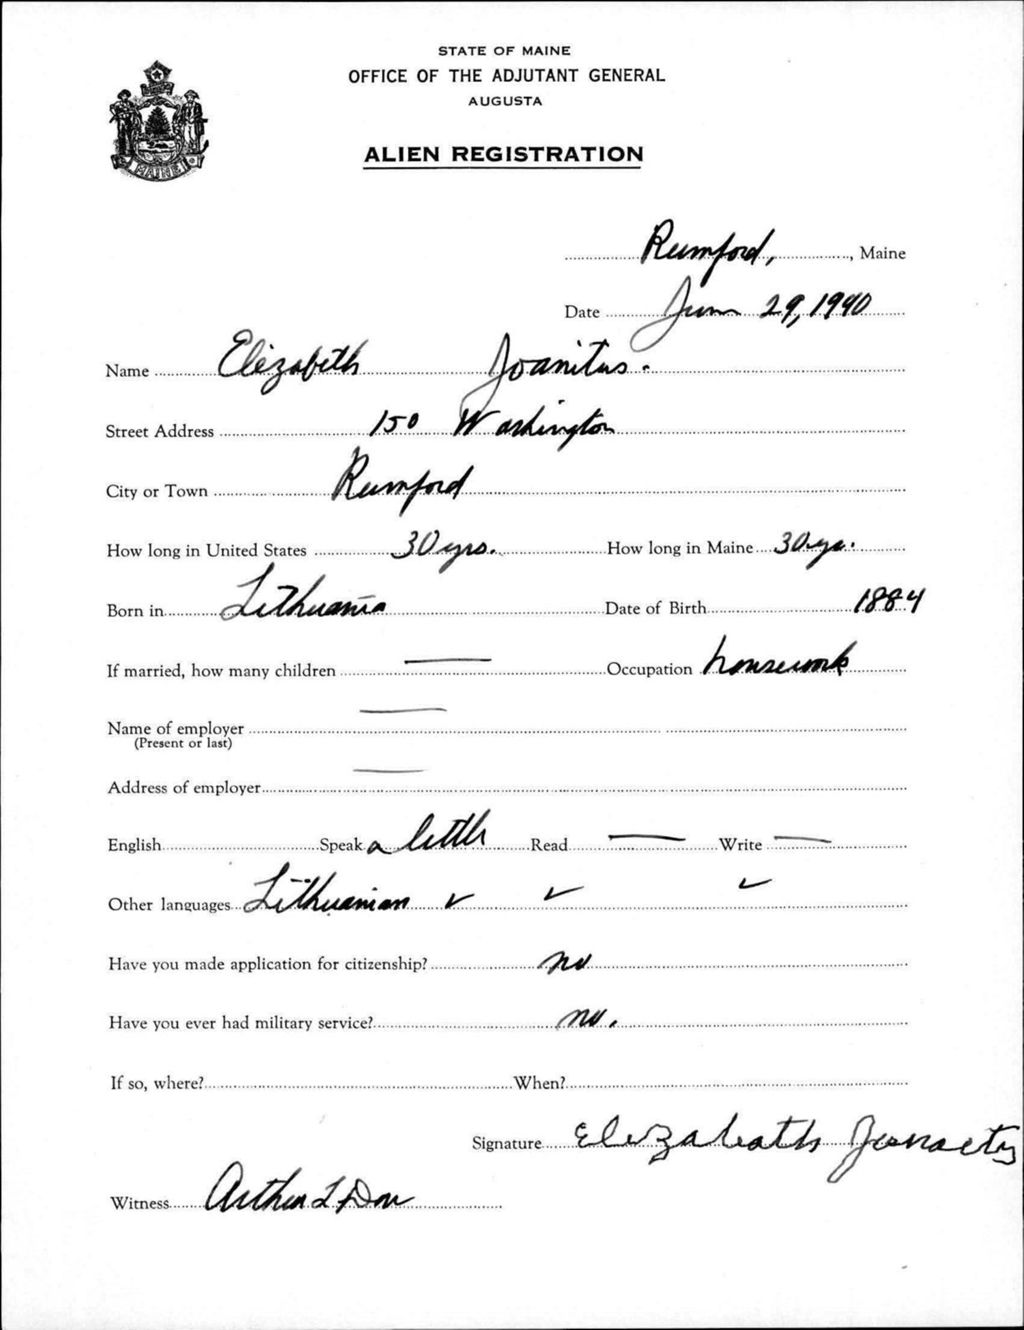 STATE OF MAINE
OFFICE OF THE ADJUTANT GENERAL
AUGUSTA
ALIEN REGISTRATION
MAINE
Rumford, , Maine
Date June 29, 1940
Name Elizabeth Joanitus.
Street Address 150 Washington
City or Town Rumford
How long in United States 30 yrs. How long in Maine 30 yrs.
Born in Lithuania Date of Birth 1884
If married, how many children — Occupation housework
Name of employer —
(Present or last)
Address of employer —
English Speak a little Read — Write —
Other languages Lithuanian ✓ ✓ ✓
Have you made application for citizenship? no
Have you ever had military service? no.
If so, where? When?
Signature Elizabeath
Witness Arthur L